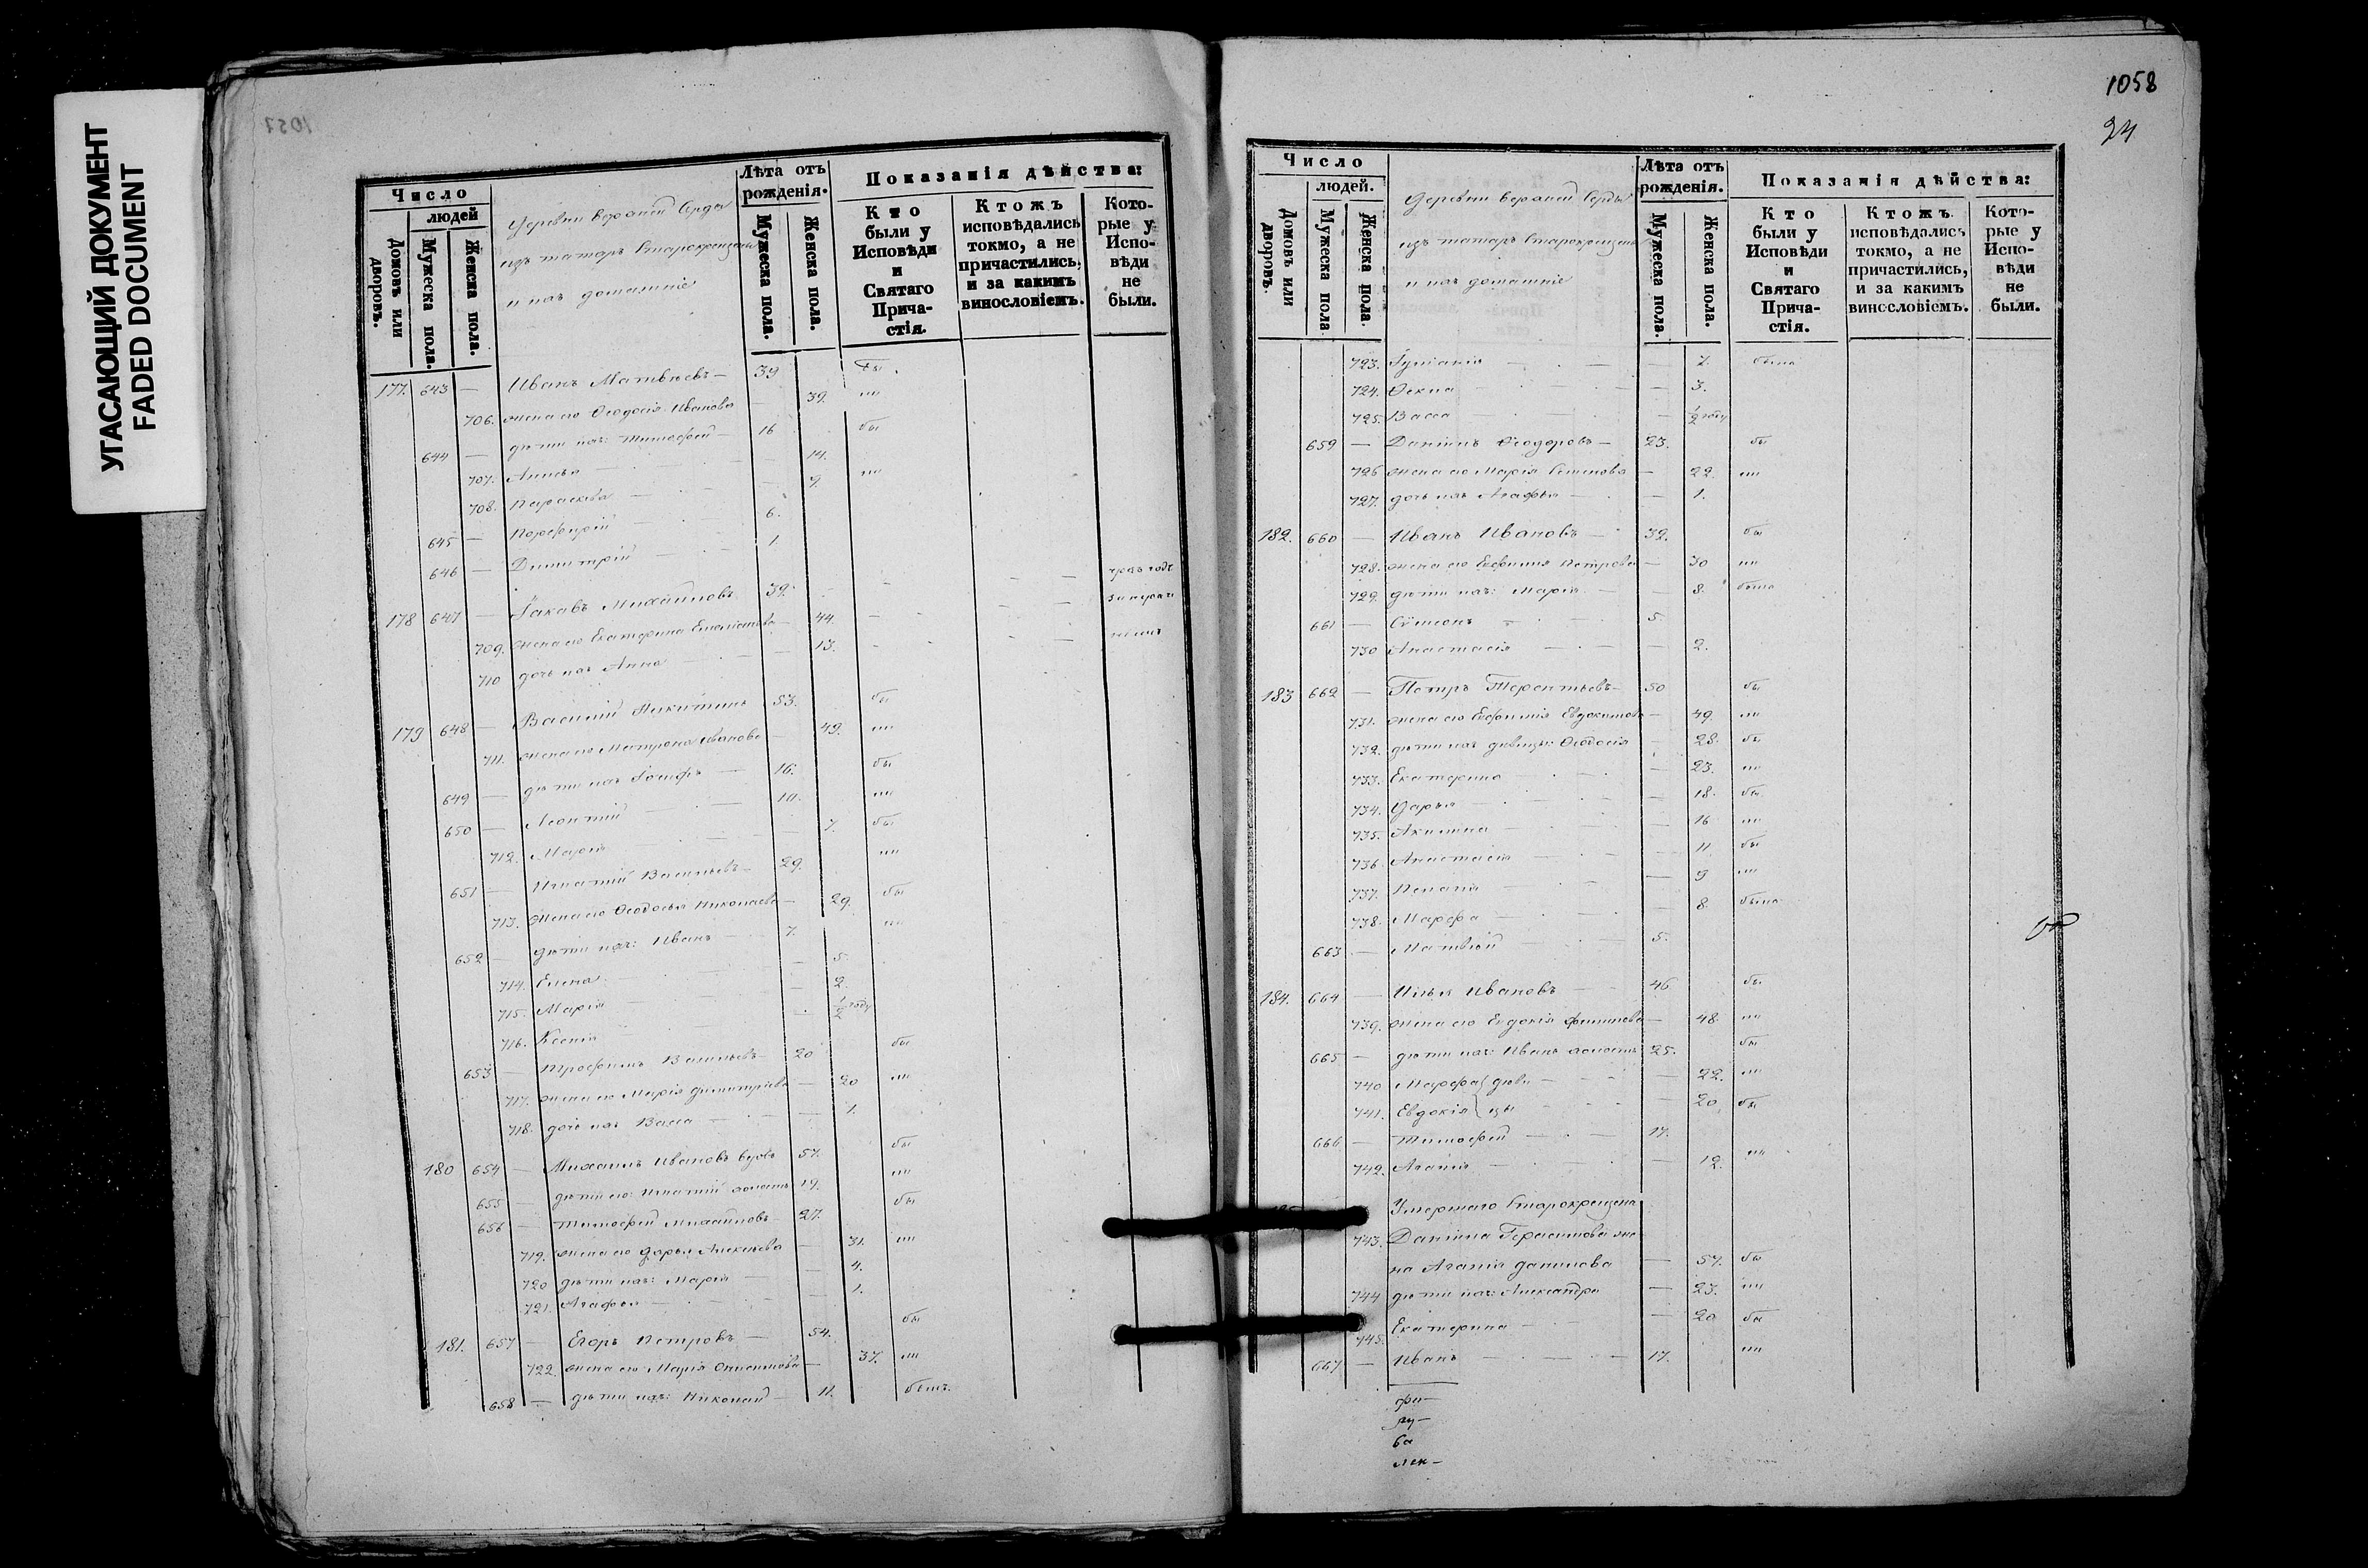 УГАСАЮЩИЙ ДОКУМЕНТ
FADED DOCUMENT
1057
Число
людей
Домовъ или дворовъ.
Мужеска пола.
Женска пола.
Деревни верхней Серды
изъ татаръ старокрещены
и ихъ домашніе
Лѣта отъ рожденія.
Мужеска пола.
Женска пола.
Показанія дѣйства:
Кто были у Исповѣди и Святаго Причастія.
Ктожъ исповѣдались токмо, а не причастились, и за какимъ винословіемъ.
Которые у Исповѣди не были.
177. 643 — Иванъ Матвѣевъ — 39 бы
706. жена его Ѳеодосія Иванова — 39. ли
644 — дѣти ихъ: Тимофей — 16 бы
707. Анисья — 14. ли
708. Параскева — 9.
645 — Порфирій — 6.
646 — Димитрій — 1
178 647 — Іаковъ Михайловъ 39.
709. жена его Екатерина Емеліанова — 44.
710 дочь ихъ Анна — 13.
179 648 — Василій Никитинъ 53. бы
711. жена его Матрона Иванова — 49. ли
649 — дѣти ихъ Іосифъ — 16. бы
650 — Леонтій — 10. ли
712. Марія — 7. бы
651 — Игнатій Васильевъ — 29. ли
713. жена его Ѳеодосья Николаева — 29. бы
652 — дѣти ихъ: Иванъ — 7. ли
714. Елена — 5.
715. Марія — 2.
716. Ксенія — 1/2 году
653 — Трофимъ Васильевъ — 20 бы
717. жена его Марія Димитріева — 20 ли
718. дочь ихъ Васса — 1.
180 654 — Михаилъ Ивановъ вдовъ 57. бы
655 — дѣти его: Игнатій холостъ 19. ли
656 — Тимофей Михайловъ 27. бы
719. жена его Дарья Алексѣева — 31. ли
720 дѣти ихъ: Марія — 4.
721. Агафья — 1.
181. 657 — Егоръ Петровъ — 54. бы
722. жена его Марія Онисимова — 37. ли
658 — дѣти ихъ: Николай — 11. былъ.
1058
24
Число
людей.
Домовъ или дворовъ.
Мужеска пола
Женска пола.
Деревни верхней Серды
изъ татаръ старокрещены
и ихъ домашніе
Лѣта отъ рожденія.
Мужеска пола.
Женска пола.
Показанія дѣйства:
Кто были у Исповѣди и Святаго Причастія.
Ктожъ исповѣдались токмо, а не причастились, и за какимъ винословіемъ.
Которые у Исповѣди не были.
723. Іуліанія — 7. была
724. Ѳекла — 3.
725. Васса — 1/2 году
659 — Даніилъ Ѳеодоровъ — 23. бы
726 жена его Марія — 22. ли
727. дочь ихъ Агафья — 1.
182. 660 — Иванъ Ивановъ — 32. бы
728. жена его Евфимія Петрова — 30 ли
729. дѣти ихъ: Марія — 8. была
661 — Сѵмеонъ — 5.
730 Анастасія — 2.
183 662 — Петръ Терентьевъ — 50 бы
731. жена его Евфимія Евдокимова — 49. ли
732. дѣти ихъ дѣвицы: Ѳеодосія — 28. бы
733. Екатерина — 23. ли
734. Дарья — 18. бы
735. Акилина — 16 ли
736. Анастасія — 11. бы
737. Пелагія — 9 ли
738. Марфа — 8. была
663 — Матвѣй — 5.
184. 664 — Илья Ивановъ — 46 бы
739. жена его Евдокія Филипова — 48. ли
665 — дѣти ихъ: Иванъ холостъ 25. бы
740 Марфа } дѣви — 22. ли
741. Евдокія } цы — 20. бы
666 — Тимофей — 17.
742. Агапія — 12. ли
Умершаго старокрещена
743. Даніила Герасимова же
на Агапія Данилова — 57. бы
744 дѣти ихъ: Александра — 23. ли
745. Екатерина — 20 бы
667 — Иванъ — 17. ли